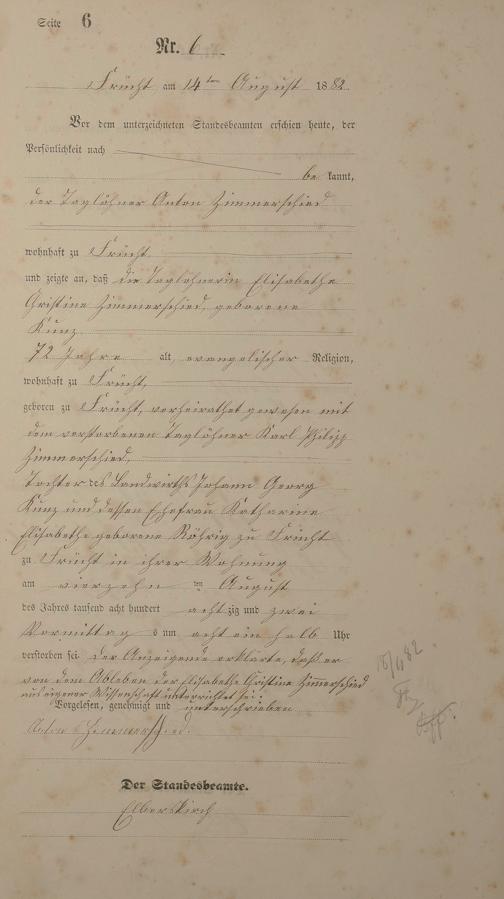 Seite 6
Nr. 6
Frücht am 14ten August 1882
Vor dem unterzeichneten Standesbeamten erschien heute, der
Persönlichkeit nach
bekannt,
der Taglöhner Anton Zimmerschied
wohnhaft zu Frücht
und zeigte an, daß die Taglöhnerin Elisabethe
Christine Zimmerschied, geborene
Kunz
72 Jahre alt, evangelischer Religion,
wohnhaft zu Frücht,
geboren zu Frücht, verheirathet gewesen mit
dem verstorbenen Taglöhner Karl Philipp
Zimmerschied,
Tochter des Landwirths Johann Georg
Kunz und dessen Ehefrau Katharine
Elisabethe geborene Röhrig zu Frücht
zu Frücht in ihrer Wohnung
am vierzehn ten August
des Jahres tausend acht hundert achtzig und zwei
Vormittags um acht ein halb Uhr
verstorben sei. Der Anzeigende erklärte, daß er
von dem Ableben der Elisabethe Christine Zimmerschied
aus eigener Wissenschaft unterrichtet sei.
Vorgelesen, genehmigt und unterschrieben
Anton Zimmerschied.
Der Standesbeamte.
Elberskirch